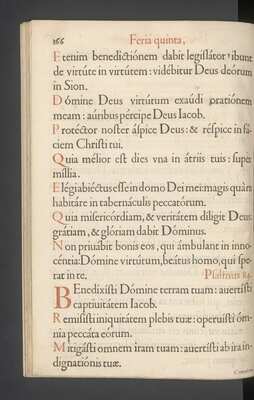 166 Feria quinta,
Etenim benedictiónem dabit legislátor, ibunt
de virtúte in virtútem: vidébitur Deus deórum
in Sion.
Dómine Deus virtútum exaúdi oratiónem
meam: aúribus pércipe Deus Iacob.
Protéctor noster áspice Deus: & réspice in fá-
ciem Christi tui.
Quia mélior est dies vna in átriis tuis: super
míllia.
Elégi abiéctus esse in domo Dei mei: magis quàm
habitáre in tabernáculis peccatórum.
Quia misericórdiam, & veritátem diligit Deus:
grátiam, & glóriam dabit Dóminus.
Non priuábit bonis eos, qui ámbulant in inno-
céntia: Dómine virtútum, beátus homo, qui spe-
rat in te. Psalmus 84.
BEnedixísti Dómine terram tuam: auertísti
captiuitátem Iacob.
Remisísti iniquitátem plebis tuæ: operuísti óm-
nia peccáta eórum.
Mitigásti omnem iram tuam: auertísti ab ira in-
dignatiónis tuæ.